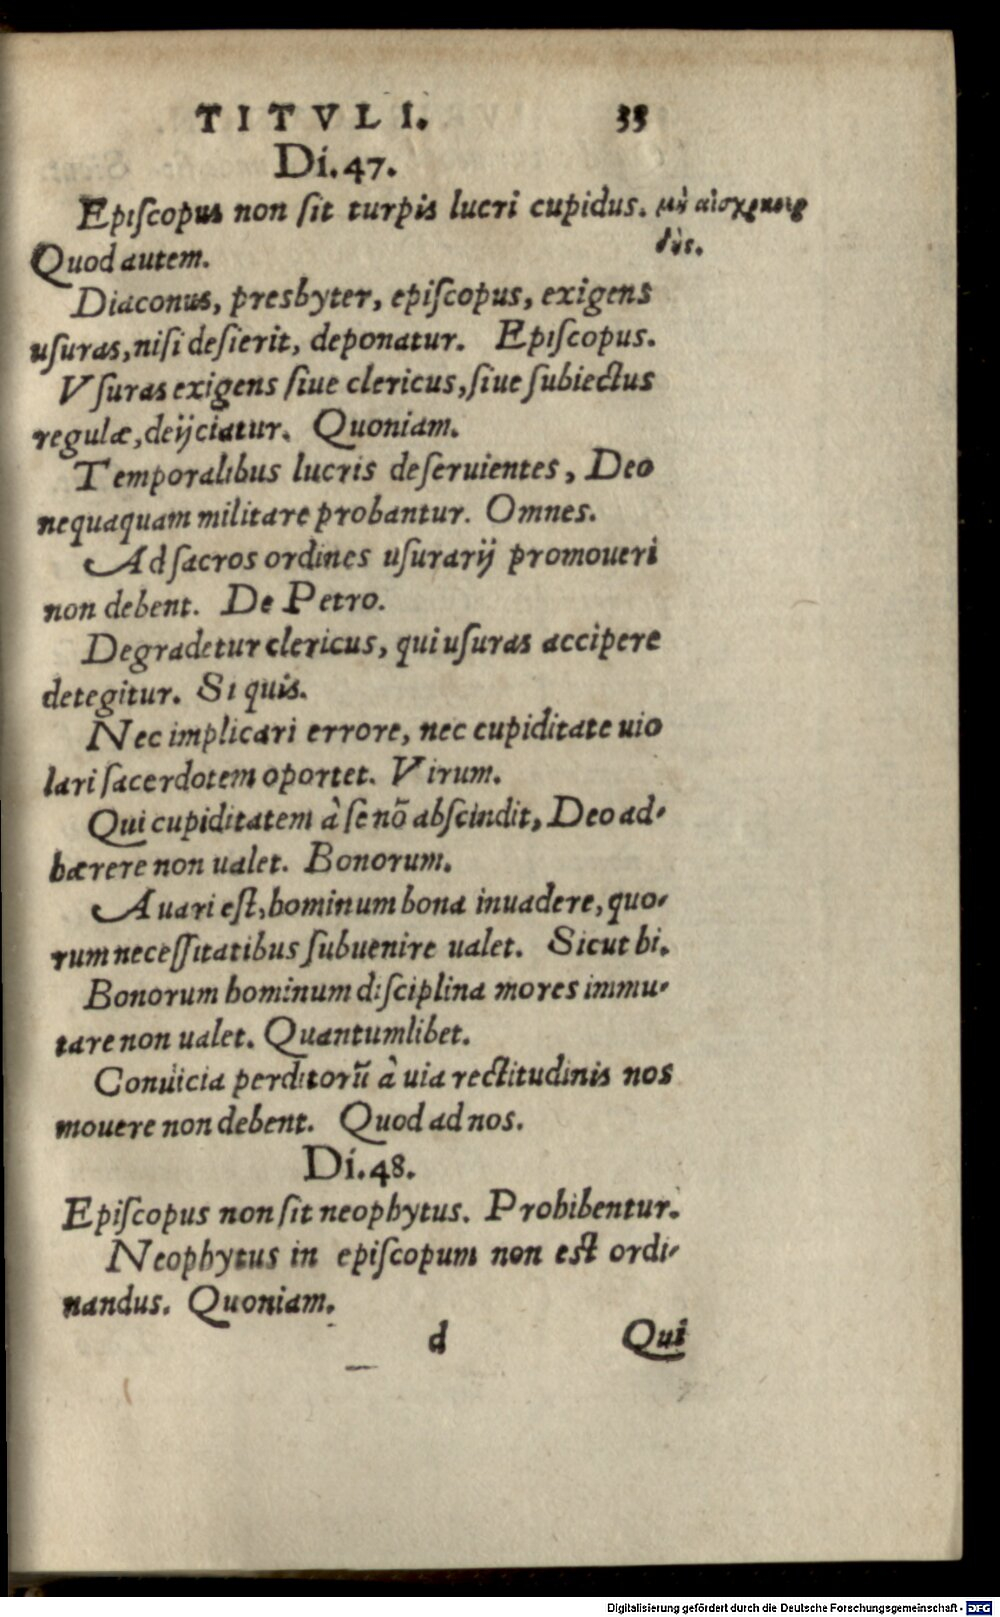 TITVLI. 33
Di.47.
Episcopus non sit turpis lucri cupidus. μὴ αἰσχροκερ
Quod autem. δὴς.
Diaconus, presbyter, episcopus, exigens
usuras, nisi desierit, deponatur. Episcopus.
Vsuras exigens siue clericus, siue subiectus
regulæ, deijciatur. Quoniam.
Temporalibus lucris deseruientes, Deo
nequaquam militare probantur. Omnes.
Ad sacros ordines usurarij promoueri
non debent. De Petro.
Degradetur clericus, qui usuras accipere
detegitur. Si quis.
Nec implicari errore, nec cupiditate uio
lari sacerdotem oportet. Virum.
Qui cupiditatem à se nõ abscindit, Deo ad-
hærere non ualet. Bonorum.
Auari est, hominum bona inuadere, quo-
rum necessitatibus subuenire ualet. Sicut hi.
Bonorum hominum disciplina mores immu-
tare non ualet. Quantumlibet.
Conuicia perditorũ à uia rectitudinis nos
mouere non debent. Quod ad nos.
Di.48.
Episcopus non sit neophytus. Prohibentur.
Neophytus in episcopum non est ordi-
nandus. Quoniam.
d Qui
Digitalisierung gefördert durch die Deutsche Forschungsgemeinschaft - DFG